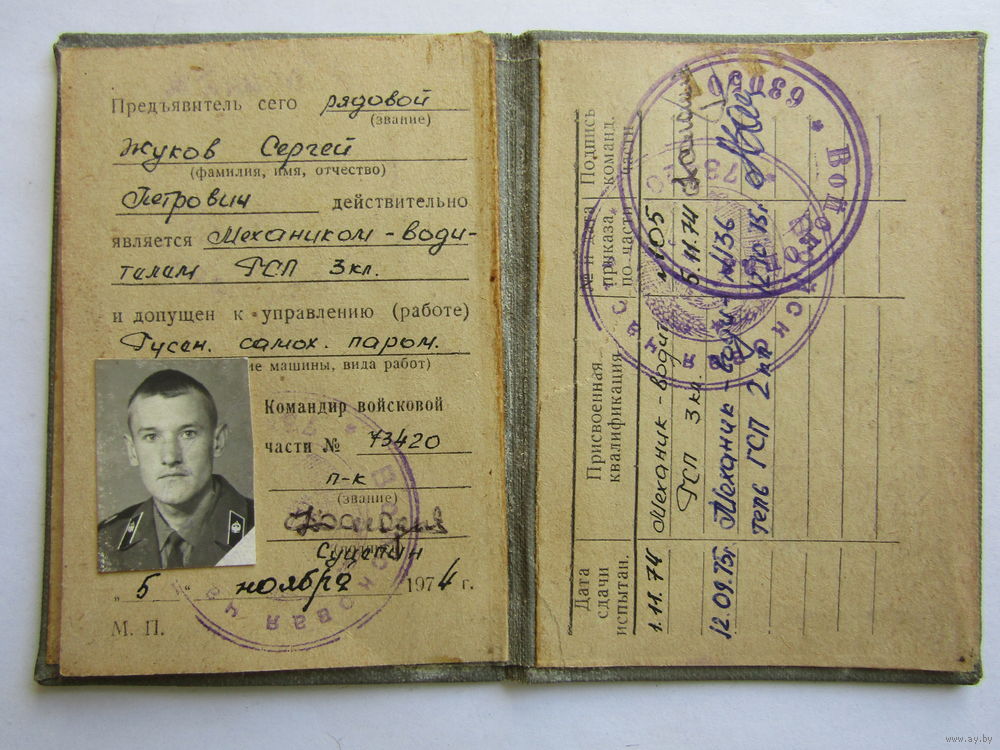 Предъявитель сего рядовой
(звание)
Жуков Сергей
(фамилия, имя, отчество)
Петрович действительно
является Механиком-води-
телем ГСП 3кл.
и допущен к управлению (работе)
Гусен. самох. паром.
ие машины, вида работ)
Командир войсковой
части № 73420
п-к
(звание)
„ 5 " ноября 1974 г.
М. П.
ВОЙСКОВАЯ ЧАСТЬ
Дата сдачи испытан.
Присвоенная квалификация
№ и дата приказа по части
Подпись команд. части
1.11.74 Механик-води- №105
ГСП 3 кл. 5.11.74
12.09.75г Механик-води- №136
тель ГСП 2 кл
63050
www.ay.by